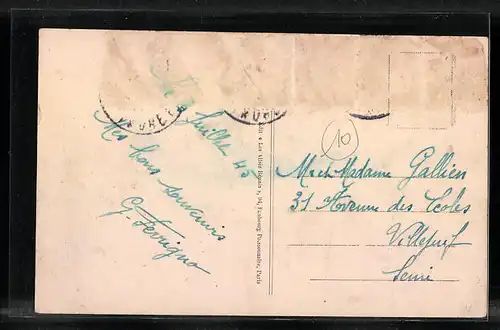 Juillet 45
Mes bons souvenirs
Edit « Les Alliés Réunis », 94, Faubourg Poissonnière, Paris
10
M et Madame Gallien
31 Avenue des Ecoles
Villejuif
Seine